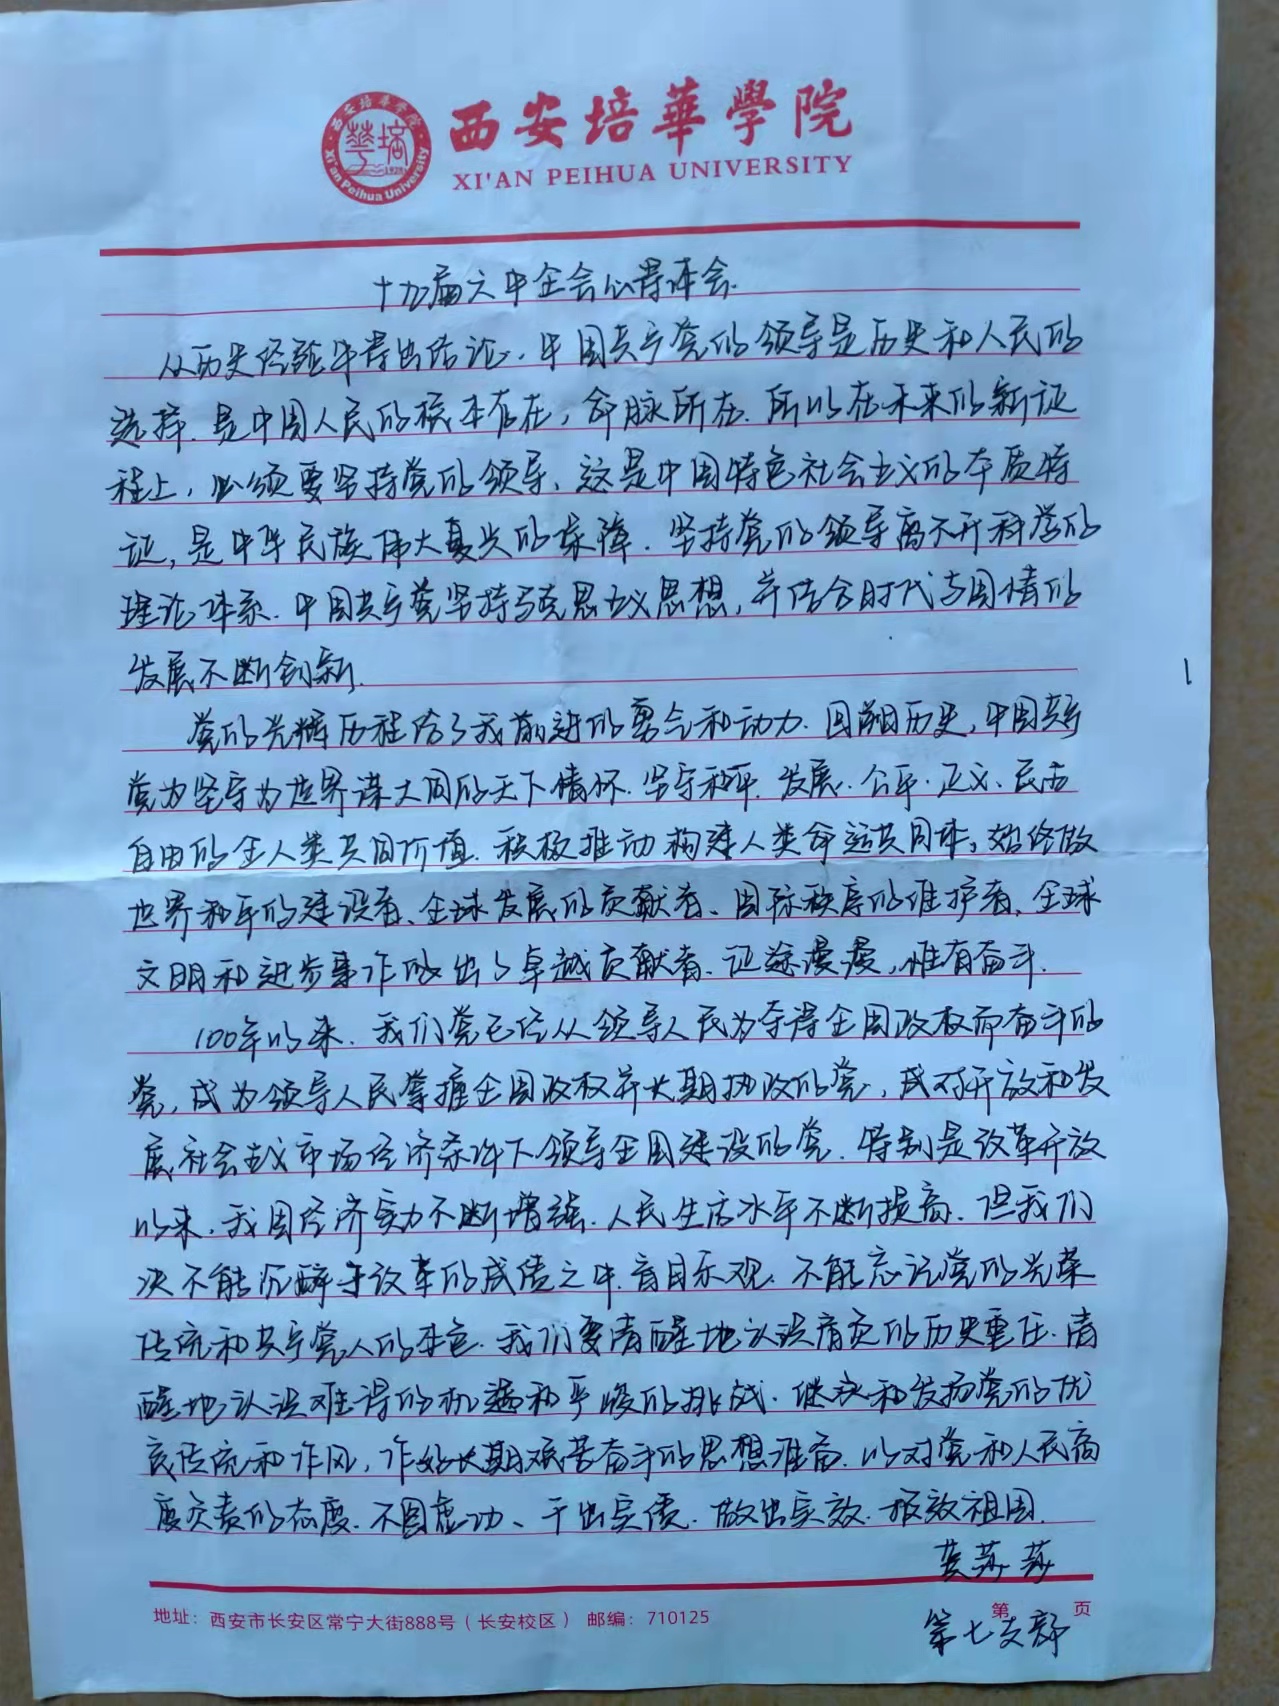 西安培華學院
XI'AN PEIHUA UNIVERSITY
西安培華學院
Xi'an Peihua University
1928
十九届六中全会心得体会.
从历史经验中得出结论、中国共产党的领导是历史和人民的
选择.是中国人民的根本存在,命脉所在.所以在未来的新证
程上,必须要坚持党的领导、这是中国特色社会主义的本质特
证,是中华民族伟大复兴的保障.坚持党的领导离不开科学的
理论体系.中国共产党坚持马克思主义思想,并结合时代与国情的
发展不断创新.
党的光辉历程给了我前进的勇气和动力.回溯历史,中国共产
党为坚守为世界谋大同的天下情怀.坚守和平.发展.公平.正义、民主
自由的全人类共同价值.积极推动构建人类命运共同体,始终做
世界和平的建设者、全球发展的贡献者、国际秩序的维护者、全球
文明和进步事作做出了卓越贡献者.证途漫漫,惟有奋斗.
100年以来.我们党已经从领导人民为夺得全国政权而奋斗的
党,成为领导人民掌握全国政权并长期执政的党,成对开放和发
展社会主义市场经济条件下领导全国建设的党.特别是改革开放
以来.我国经济实力不断增强.人民生活水平不断提高.但我们
决不能沉醉于改革的成绩之中.盲目乐观.不能忘记党的光荣
传统和共产党人的本色.我们要清醒地认识肩负的历史重任.清
醒地认识难得的机遇和严峻的挑战.继承和发扬党的优
良传统和作风,作好长期艰苦奋斗的思想准备.以对党和人民高
度负责的态度.不图虚功、干出实绩.做出实效.报效祖国.
莎莎
地址：西安市长安区常宁大街888号（长安校区） 邮编：710125
第 页
第七支部